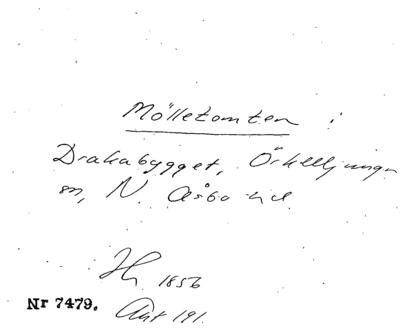 Mölletomten i
Drakabygget, Örkelljunga
sn, N. Åsbo hd.
Hg 1856
Nr 7479. Akt 191.